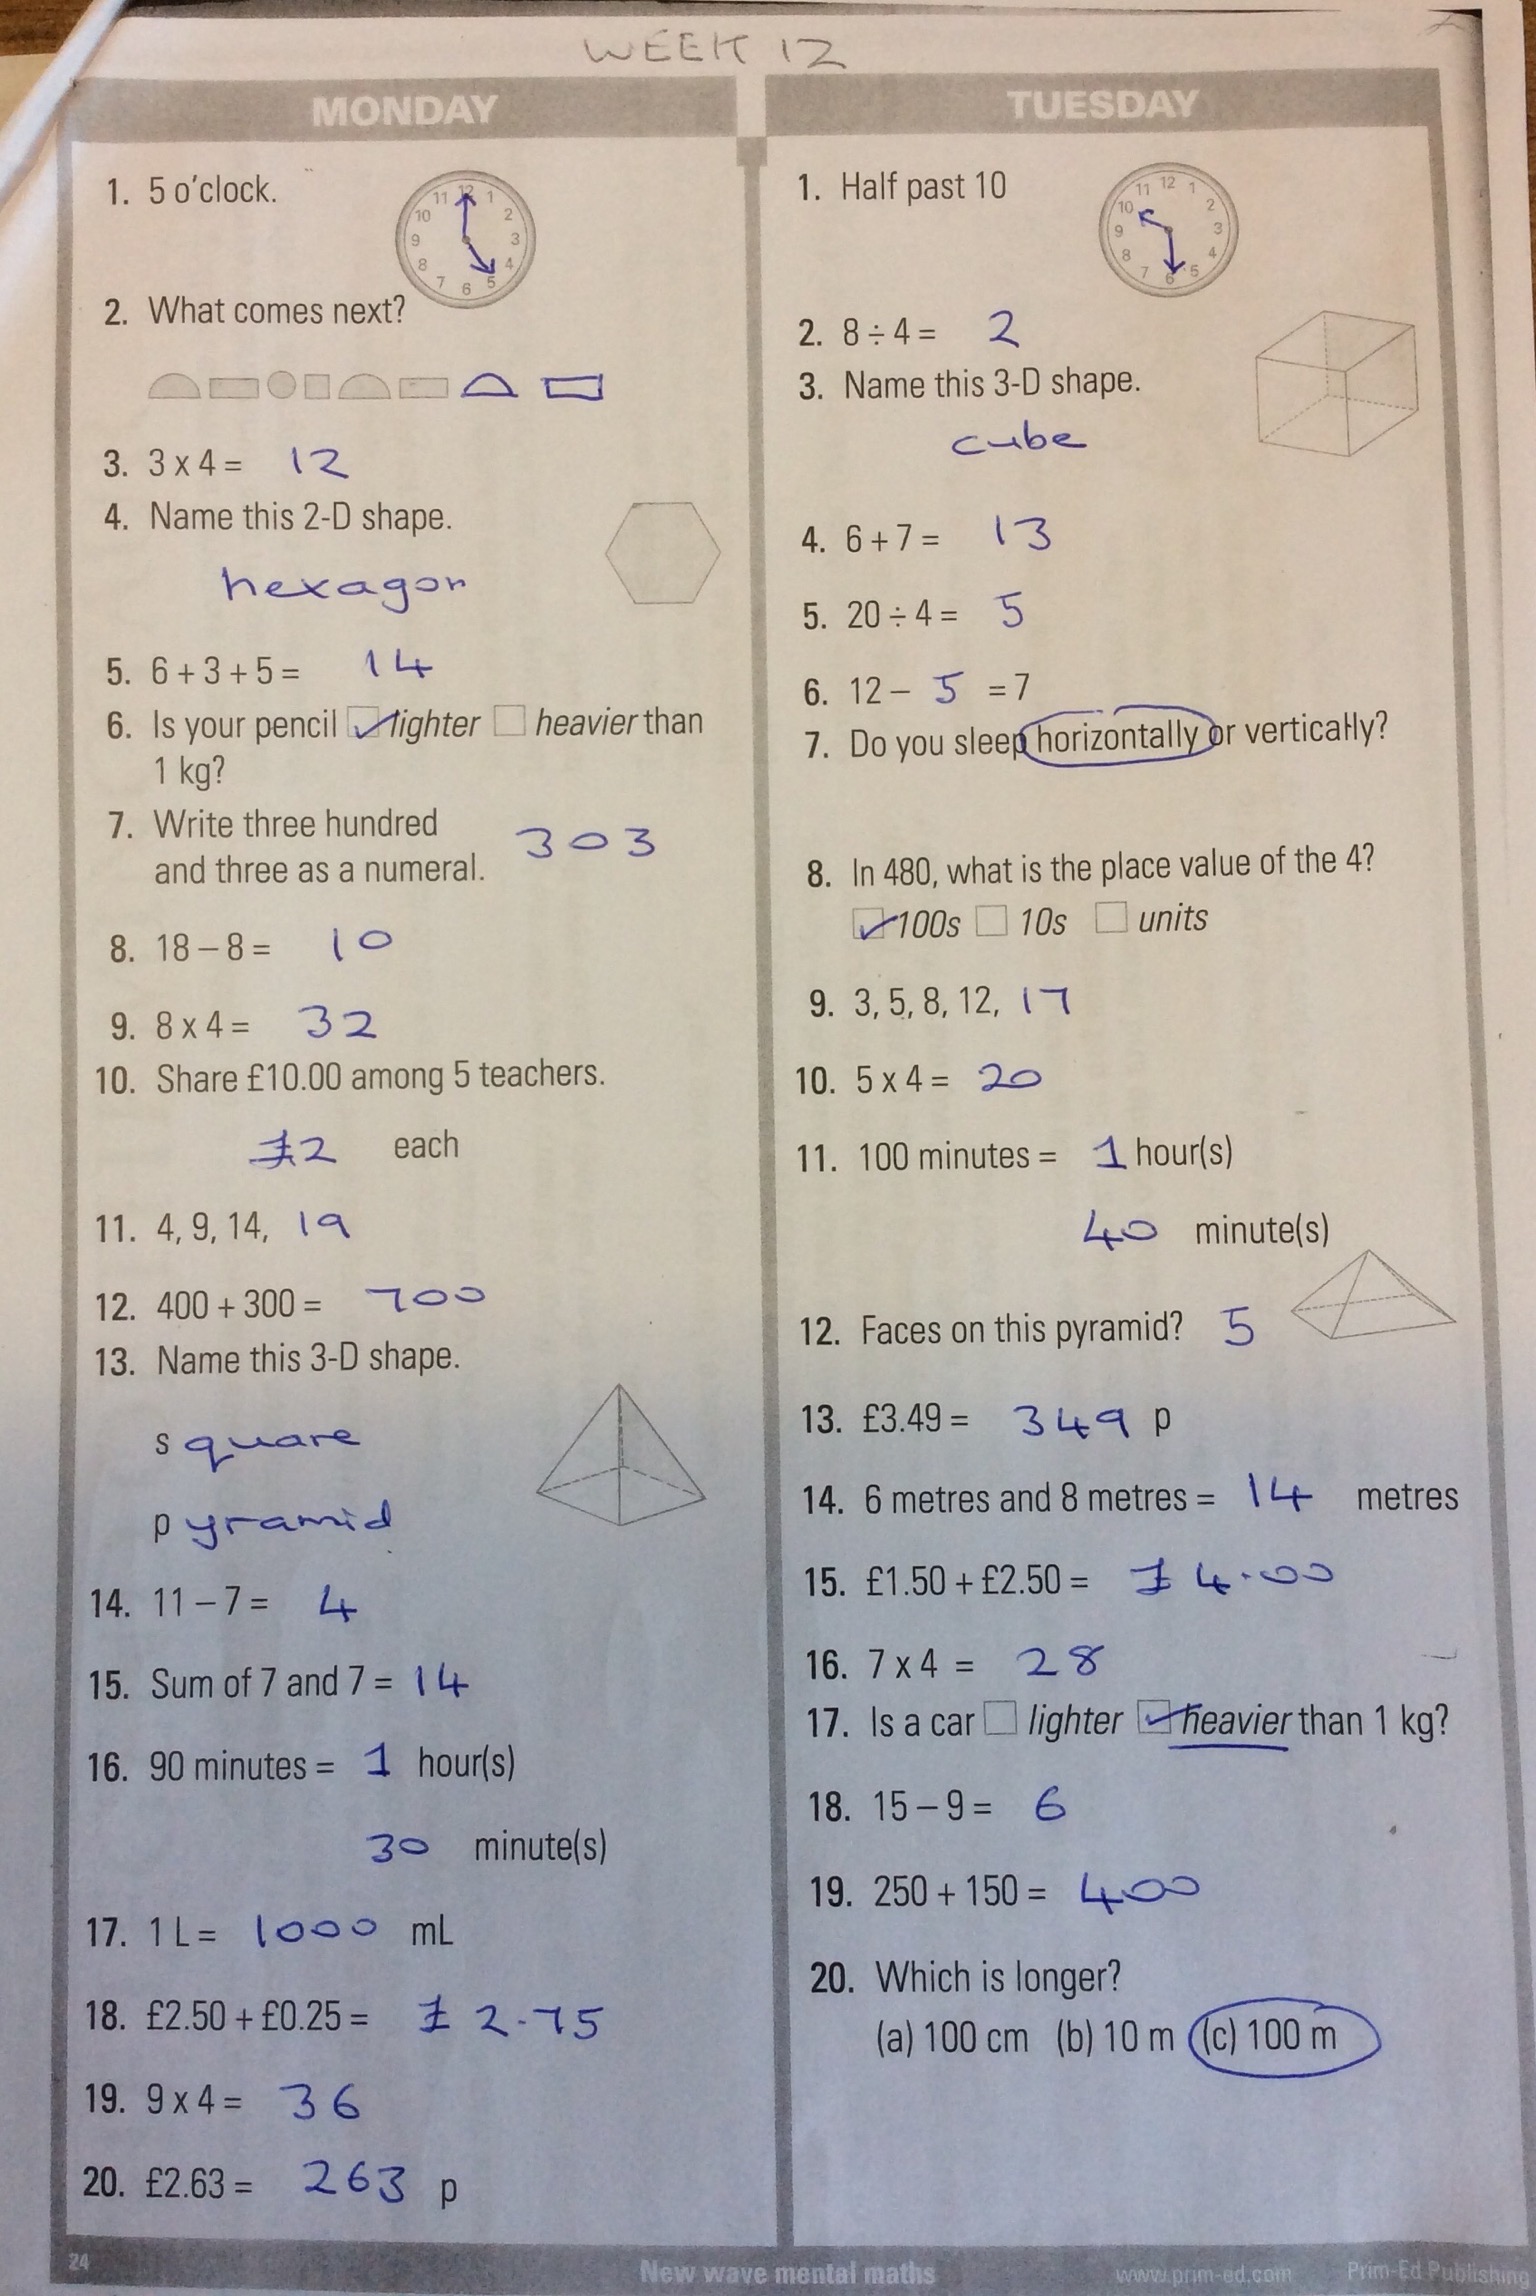 WEEK 12
MONDAY
1. 5 o'clock.
11 12 1
10 2
9 3
8 4
7 6 5
2. What comes next?
3. 3 x 4 = 12
4. Name this 2-D shape.
hexagon
5. 6 + 3 + 5 = 14
6. Is your pencil lighter heavier than
1 kg?
7. Write three hundred
and three as a numeral. 303
8. 18 – 8 = 10
9. 8 x 4 = 32
10. Share £10.00 among 5 teachers.
£2 each
11. 4, 9, 14, 19
12. 400 + 300 = 700
13. Name this 3-D shape.
square
pyramid
14. 11 – 7 = 4
15. Sum of 7 and 7 = 14
16. 90 minutes = 1 hour(s)
30 minute(s)
17. 1 L = 1000 mL
18. £2.50 + £0.25 = £ 2.75
19. 9 x 4 = 36
20. £2.63 = 263 p
TUESDAY
1. Half past 10
11 12 1
10 2
9 3
8 4
7 6 5
2. 8 ÷ 4 = 2
3. Name this 3-D shape.
cube
4. 6 + 7 = 13
5. 20 ÷ 4 = 5
6. 12 – 5 = 7
7. Do you sleep horizontally or vertically?
8. In 480, what is the place value of the 4?
100s 10s units
9. 3, 5, 8, 12, 17
10. 5 x 4 = 20
11. 100 minutes = 1 hour(s)
40 minute(s)
12. Faces on this pyramid? 5
13. £3.49 = 349 p
14. 6 metres and 8 metres = 14 metres
15. £1.50 + £2.50 = £ 4.00
16. 7 x 4 = 28
17. Is a car lighter heavier than 1 kg?
18. 15 – 9 = 6
19. 250 + 150 = 400
20. Which is longer?
(a) 100 cm (b) 10 m (c) 100 m
24 New wave mental maths www.prim-ed.com Prim-Ed Publishing